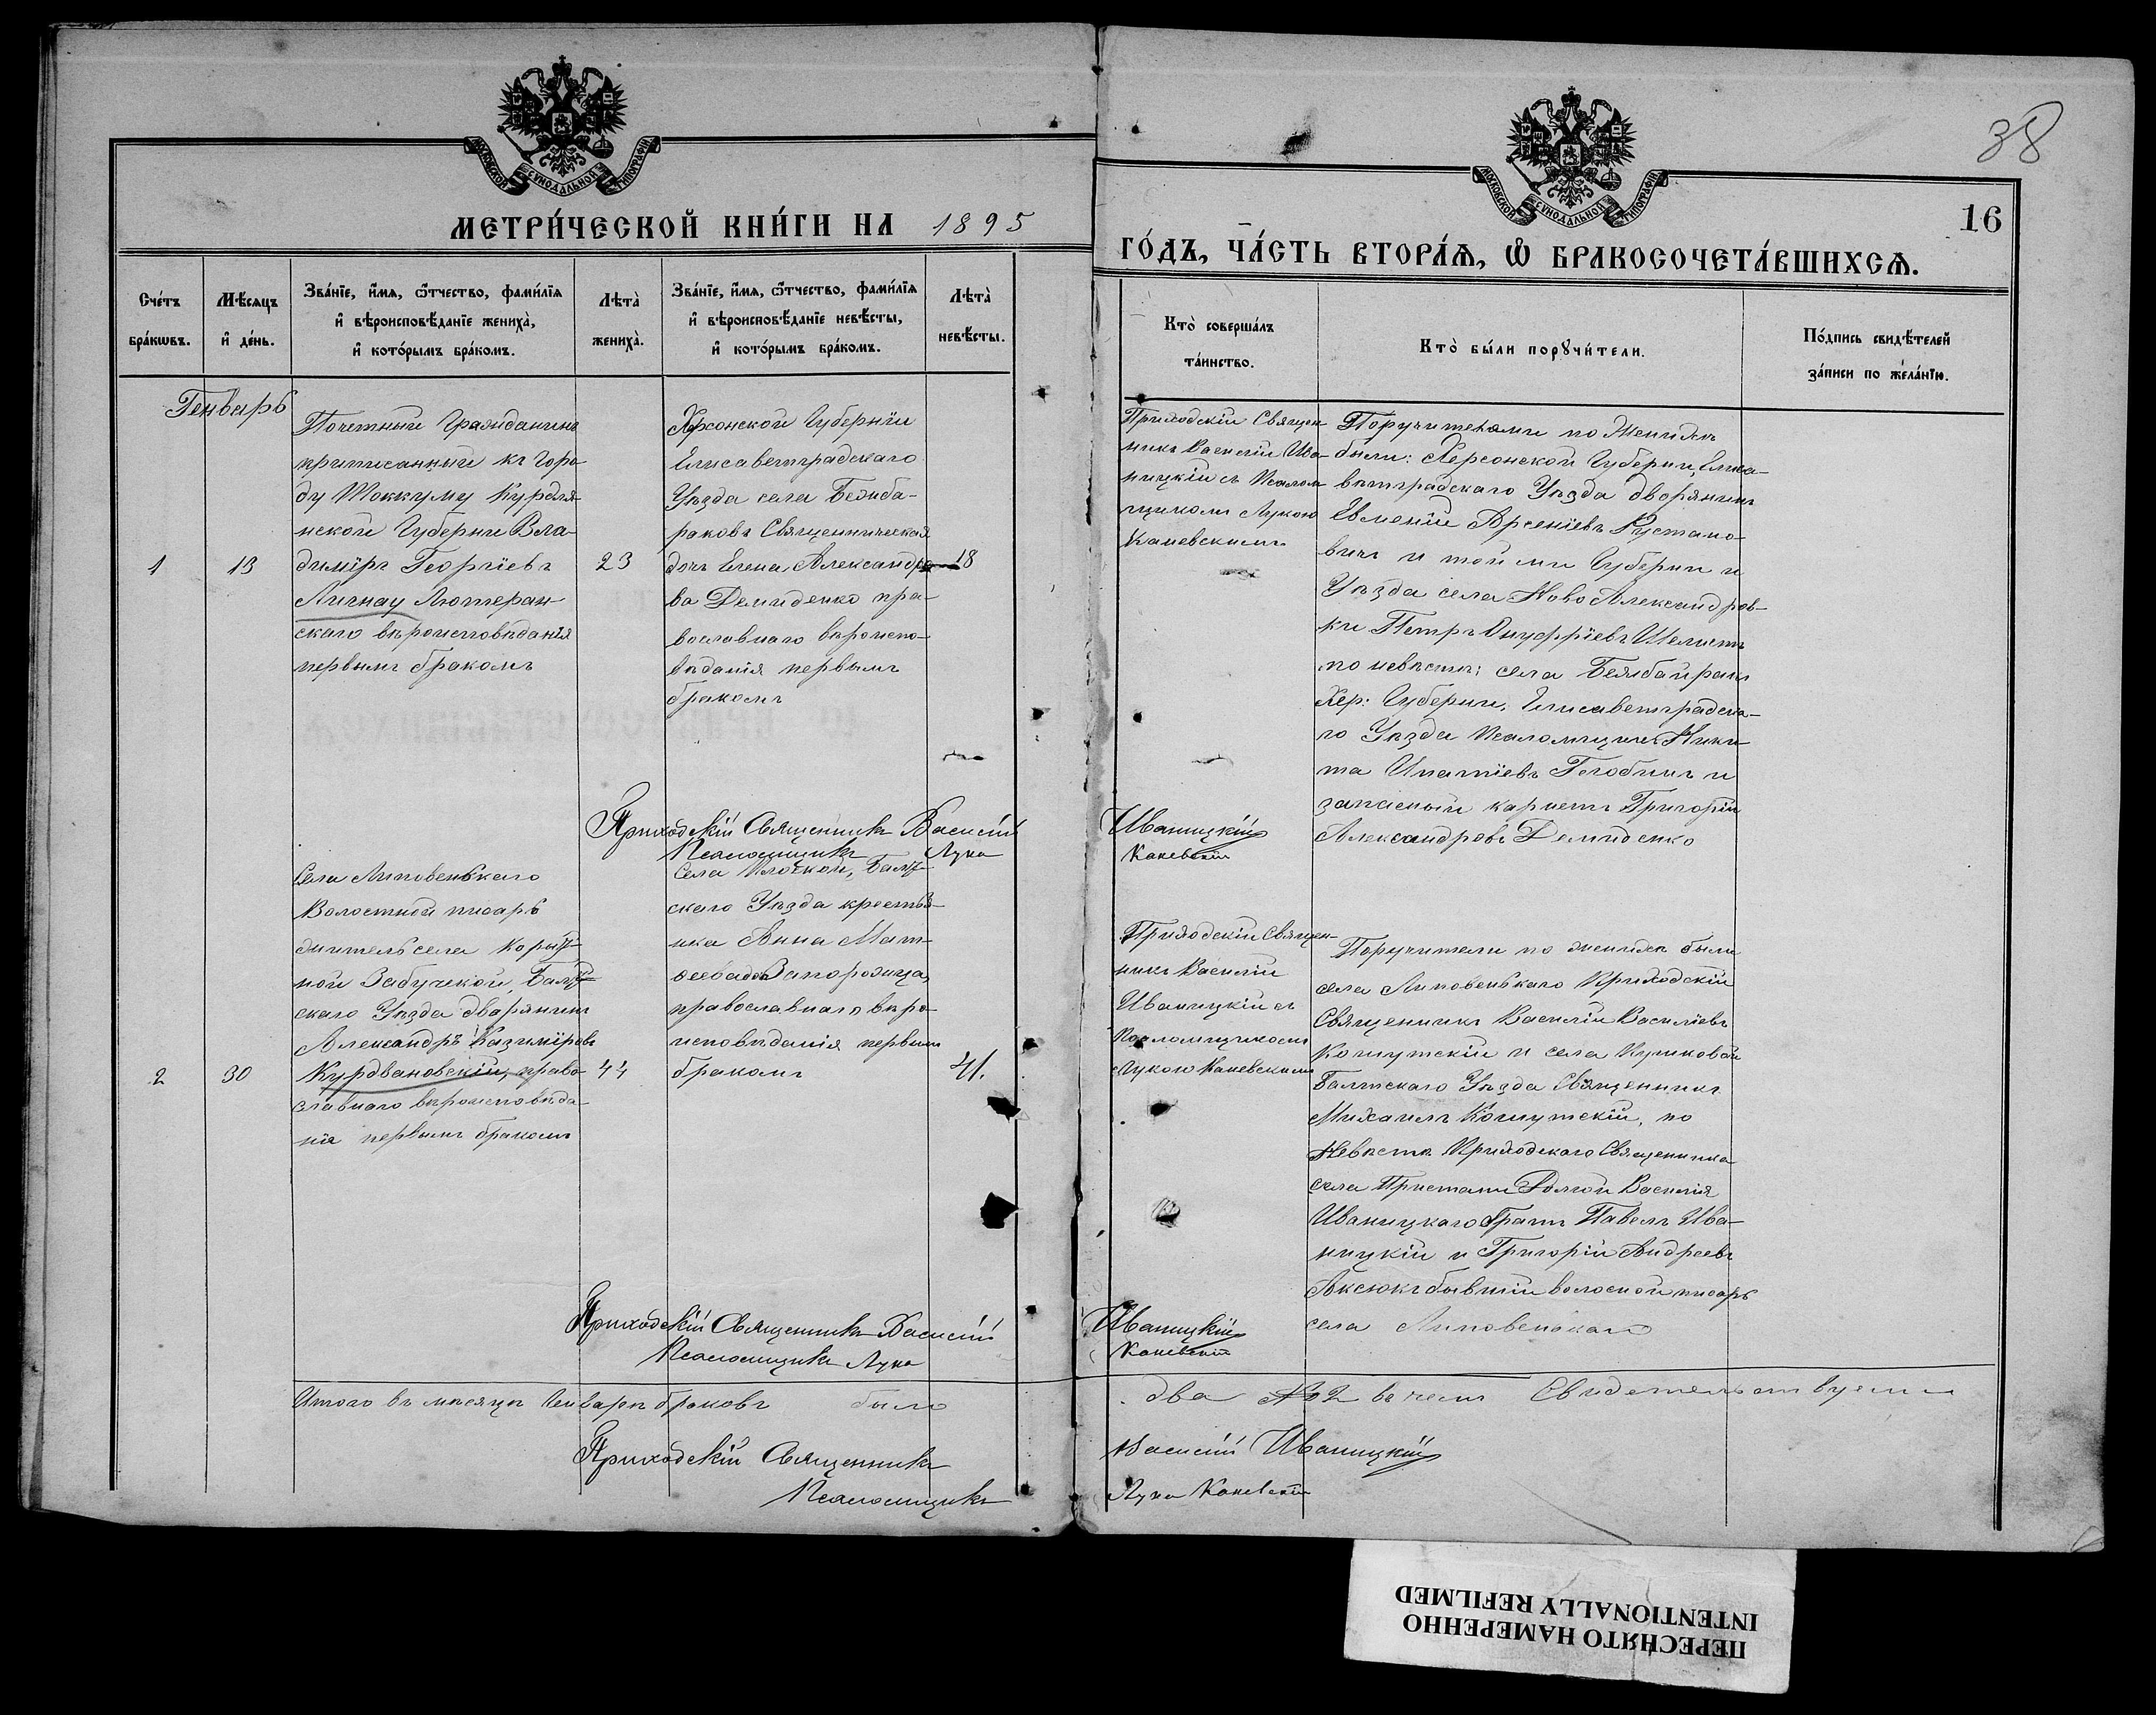 МОСКОВСКОЙ СѴНОДАЛЬНОЙ ТИПОГРАФІИ
МЕТРИ́ЧЕСКОЙ КНИ́ГИ НА 1895
Сче́тъ бра́кѡвъ.
Мѣ́сяцъ и҆ де́нь.
Зва́нїе, и҆́мѧ, ѻ҆́тчество, фами́лїѧ
и҆ вѣроисповѣ́данїе жениха̀,
и҆ кото́рымъ бра́комъ.
Лѣта̀ жениха̀.
Зва́нїе, и҆́мѧ, ѻ҆́тчество, фами́лїѧ
и҆ вѣроисповѣ́данїе невѣ́сты,
и҆ кото́рымъ бра́комъ.
Лѣта̀ невѣ́сты.
Генварь
1
13
Почетный Гражданинъ
приписанный къ Горо-
ду Туккуму Курдля-
нской Губерніи Вла-
димїръ Георгіевъ
Личнау Лютеран-
скаго вѣроисповѣданія
первымъ бракомъ
23
Херсонской Губерніи
Елисаветградскаго
Уѣзда села Беямба-
раковъ Священническая
дочь Елена Александро-
ва Демиденко пра-
вославнаго вѣроиспо-
вѣданія первымъ
бракомъ
18
Приходскій Священникъ Василій
Псаломщикъ Лука
2
30
Села Липовенькаго
Волостной писарь
житель села Корыт-
ной Забугской, Балт-
скаго Уѣзда дворянинъ
Александръ Казиміровъ
Курдвановскій, право-
славнаго вѣроисповѣда-
нія первымъ бракомъ
44
Села Плоской, Балт-
скаго Уѣзда крестья-
нка Анна Мат-
ѳеева Запорожца,
православнаго вѣро-
исповѣданія первымъ
бракомъ
41.
Приходскій Священникъ Василій
Псаломщикъ Лука
Итого въ мѣсяцѣ Генварѣ браковъ было
Приходскій Священникъ
Псаломщикъ
38
МОСКОВСКОЙ СѴНОДАЛЬНОЙ ТИПОГРАФІИ
16
ГО́ДЪ, ЧА́СТЬ ВТОРА́Ѧ, Ѽ БРАКОСОЧЕТА́ВШИХСѦ.
Кто̀ соверша́лъ та́инство.
Кто̀ бы́ли порꙋчи́тели.
По́дпись свидѣ́телей за́писи по жела́нїю.
Приходскій Священ-
никъ Василій Ива-
ницкій съ Псалом-
щикомъ Лукою
Каневскимъ
Поручителями по Женихѣ
были: Херсонской Губерніи, Елиса-
ветградскаго Уѣзда дворянинъ
Евменій Арсеніевъ Рустано-
вичъ и той ми Губерніи и
Уѣзда села Ново Александров-
ки Петръ Онуфріевъ Шелистъ
по невѣстѣ: села Беямбайракъ
Хер: Губерніи, Елисаветградска-
го Уѣзда Псаломщикъ Ники-
та Ипатіевъ Голобинъ и
запасный карнетъ Григорій
Александровъ Демиденко
Иваницкій
Каневскій
Приходскій Священ-
никъ Василій
Иваницкій съ
Псаломщикомъ
Лукою Каневскимъ
Поручители по женихѣ были
села Липовенькаго Приходскій
Священникъ Василій Василіевъ
Кошутскій и села Кумковой
Балтскаго Уѣзда Священникъ
Михаилъ Кошутскій, по
Невѣстѣ Приходскаго Священника
села Пристани Долгой Василія
Иваницкаго братъ Павелъ Ива-
ницкій и Григорій Андреевъ
Аксюкъ бывшій волосной писарь
села Липовенькаго
Иваницкій
Каневскій
два № 2 въ чемъ Свидетельствуемъ
Василій Иваницкій
Лука Каневскій
ПЕРЕСНЯТО НАМЕРЕННО
INTENTIONALLY REFILMED